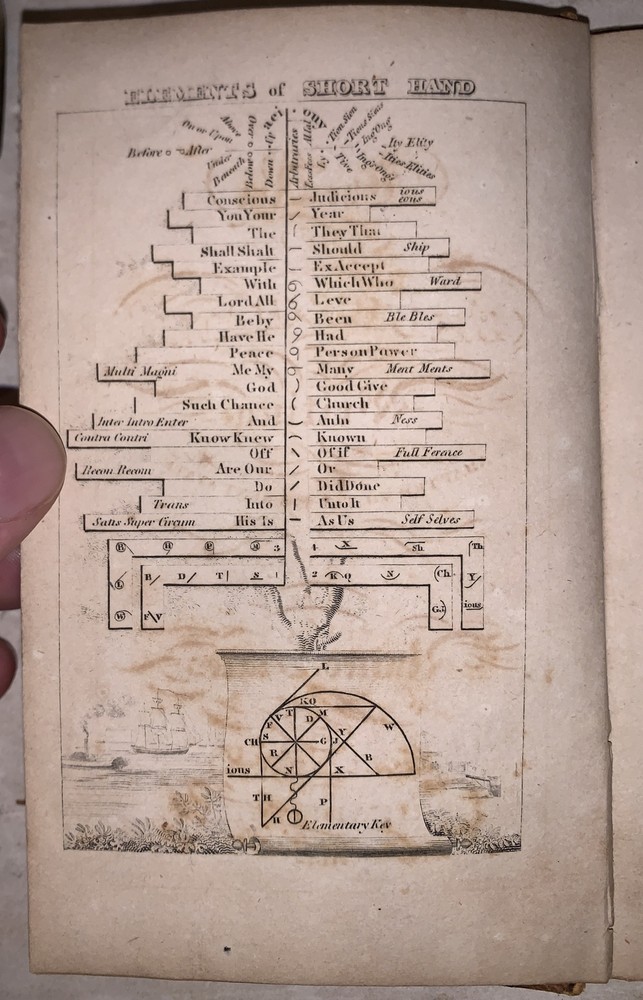 ELEMENTS of SHORT HAND
On or Upon Above Over
Before After Under Beneath Below Down
Arbitraries
Tion Sion Tions Sions
Ing Ong Ings Ongs
Ity Elity
Ities Elities
Ly Tive
Conscious Judicious ious eous
You Your Year
The They That
Shall Shalt Should Ship
Example Ex Accept
With Which Who Ward
Lord All Leve
Beby Been Ble Bles
Have He Had
Peace Person Power
Multi Magni Me My Many Ment Ments
God Good Give
Such Chance Church
Inter Intro Enter And An In Ness
Contra Contri Know Knew Known
Off Of if Full Ference
Recon Recom Are Our Or
Do Did Done
Trans Into Unto It
Satis Super Circum His Is As Us Self Selves
R H P M 3 4 X Sh Th
L B D T S 1 2 K Q N Ch Y
W F V G J ious
L
K Q
F V T D M Y W
CH S G J
R B
ious N X
TH P
H
Elementary Key